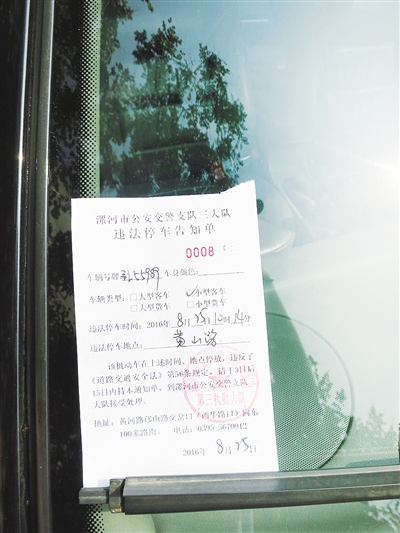 漯河市公安交警支队三大队
违法停车告知单
0008
车辆号牌 L55989 车身颜色:
车辆类型: □大型客车 ☑小型客车
□大型货车 □小型货车
违法停车时间: 2016年8月25日10时14分
违法停车地点: 黄山路
该机动车在上述时间、地点停放,违反了
《道路交通安全法》第56条规定。请于3日后
15日内持本通知单,到漯河市公安交警支队
大队接受处理。
第三执勤大队
地址: 黄河路嵩山路交叉口(西华路口)向东
100米路南。 电话: 0395-5670942
2016年8月25日